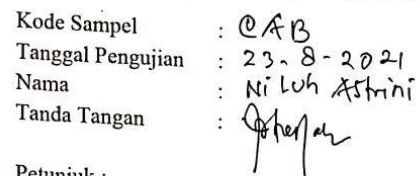 Kode Sampel : CAB
Tanggal Pengujian : 23-8-2021
Nama : Ni Luh Astrini
Tanda Tangan :
Petunjuk :